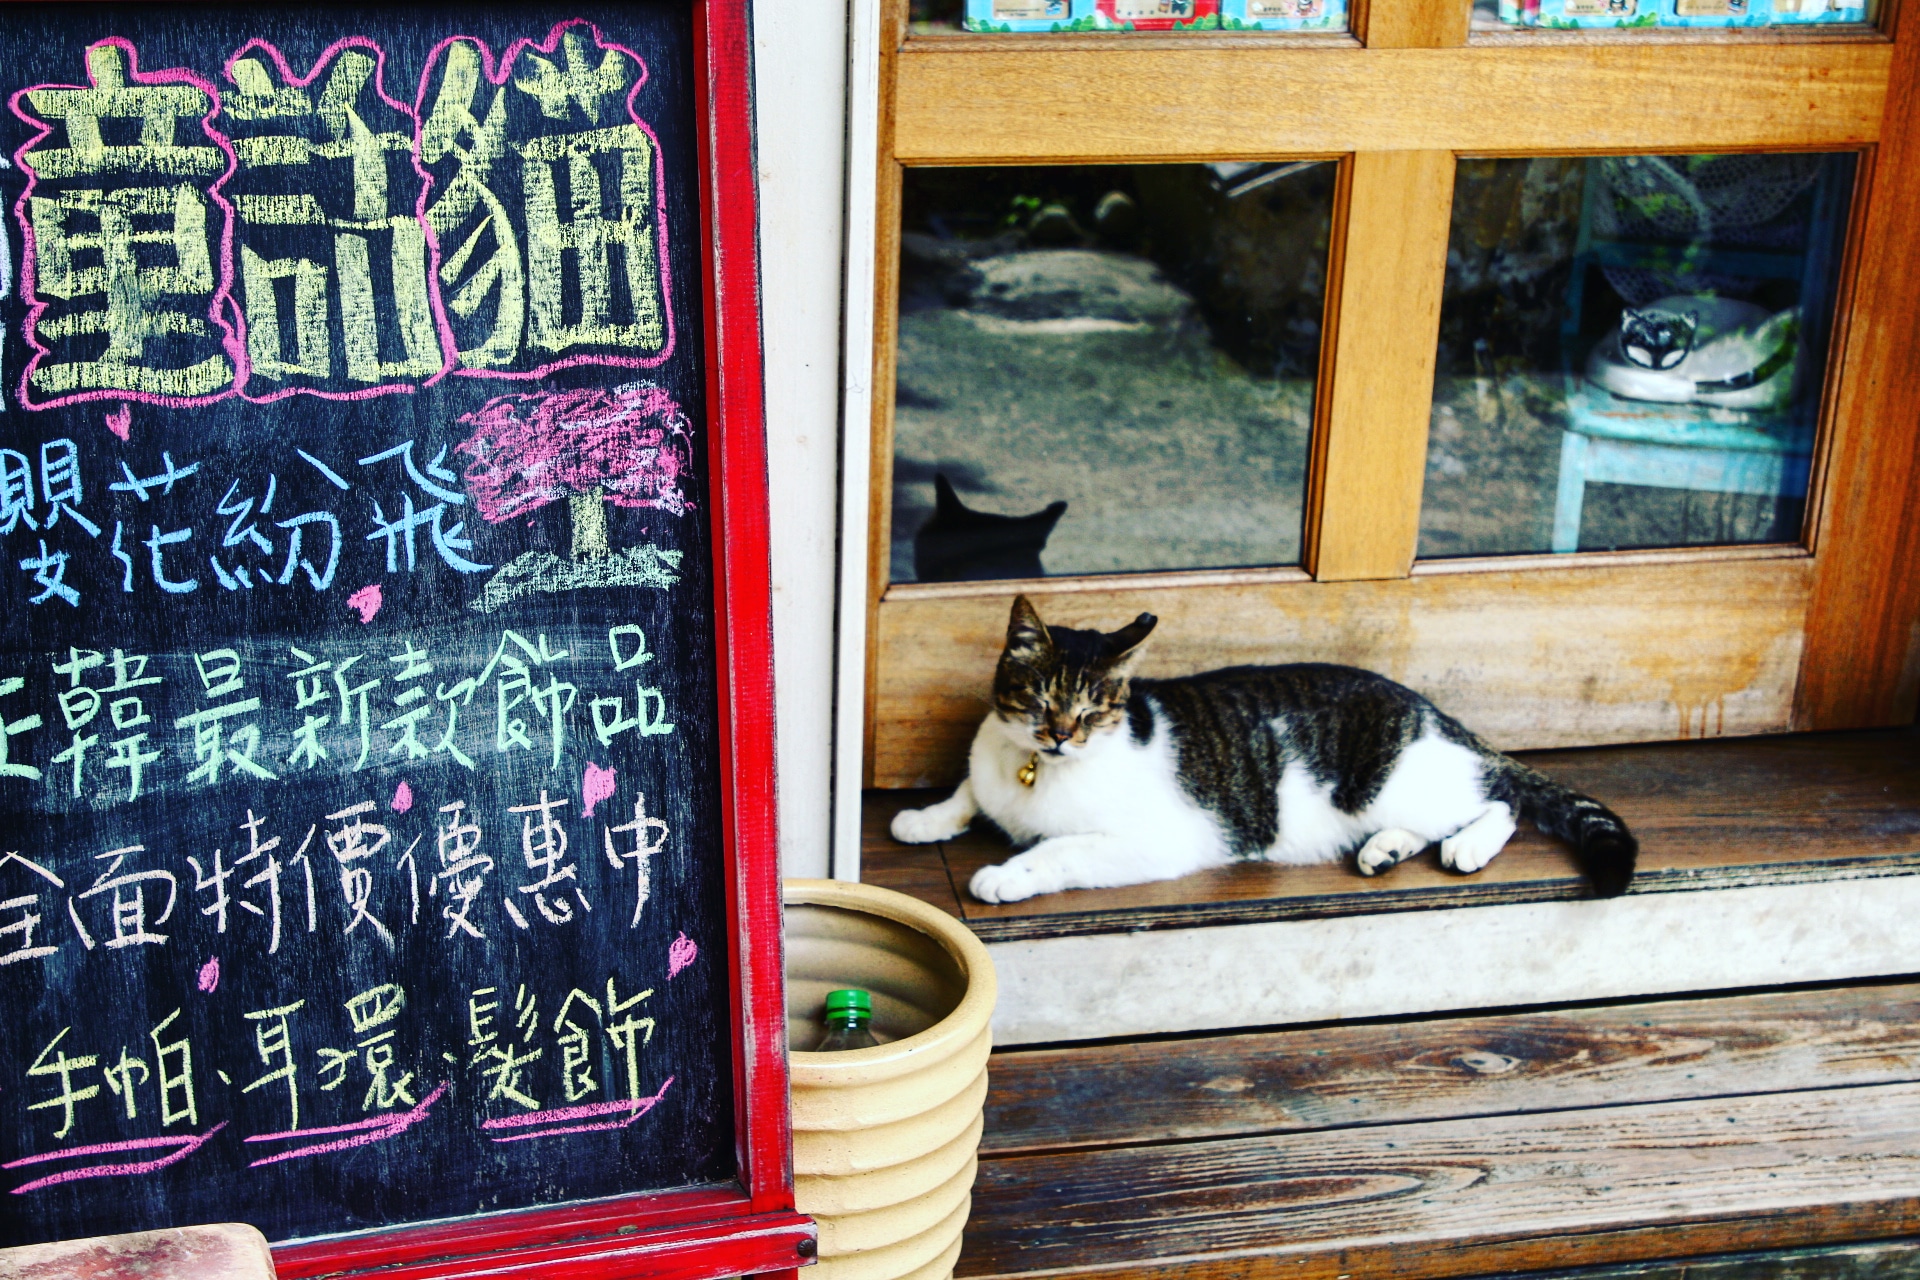 童話貓
櫻花紛飛
正韓最新款飾品
全面特價優惠中
手帕、耳環、髮飾